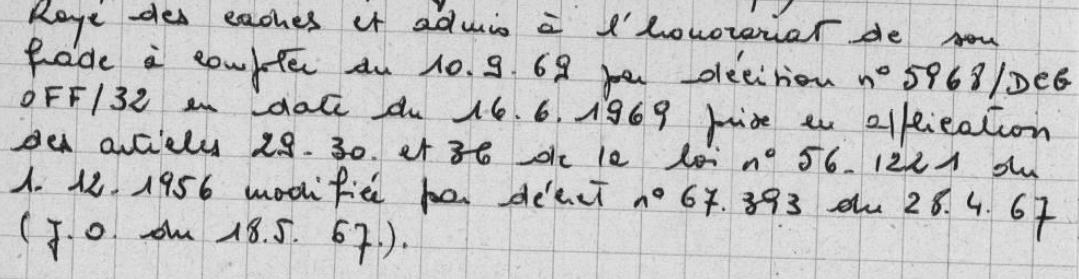 Rayé des cadres et admis à l'honorariat de son
grade à compter du 10.9.69 par décision n° 5968/DCG
OFF/32 en date du 16.6.1969 prise en application
des articles 29-30. et 36 de la loi n° 56-1221 du
1. 12. 1956 modifiée par décret n° 67.393 du 28.4.67
(J.O. du 18.5. 67.).